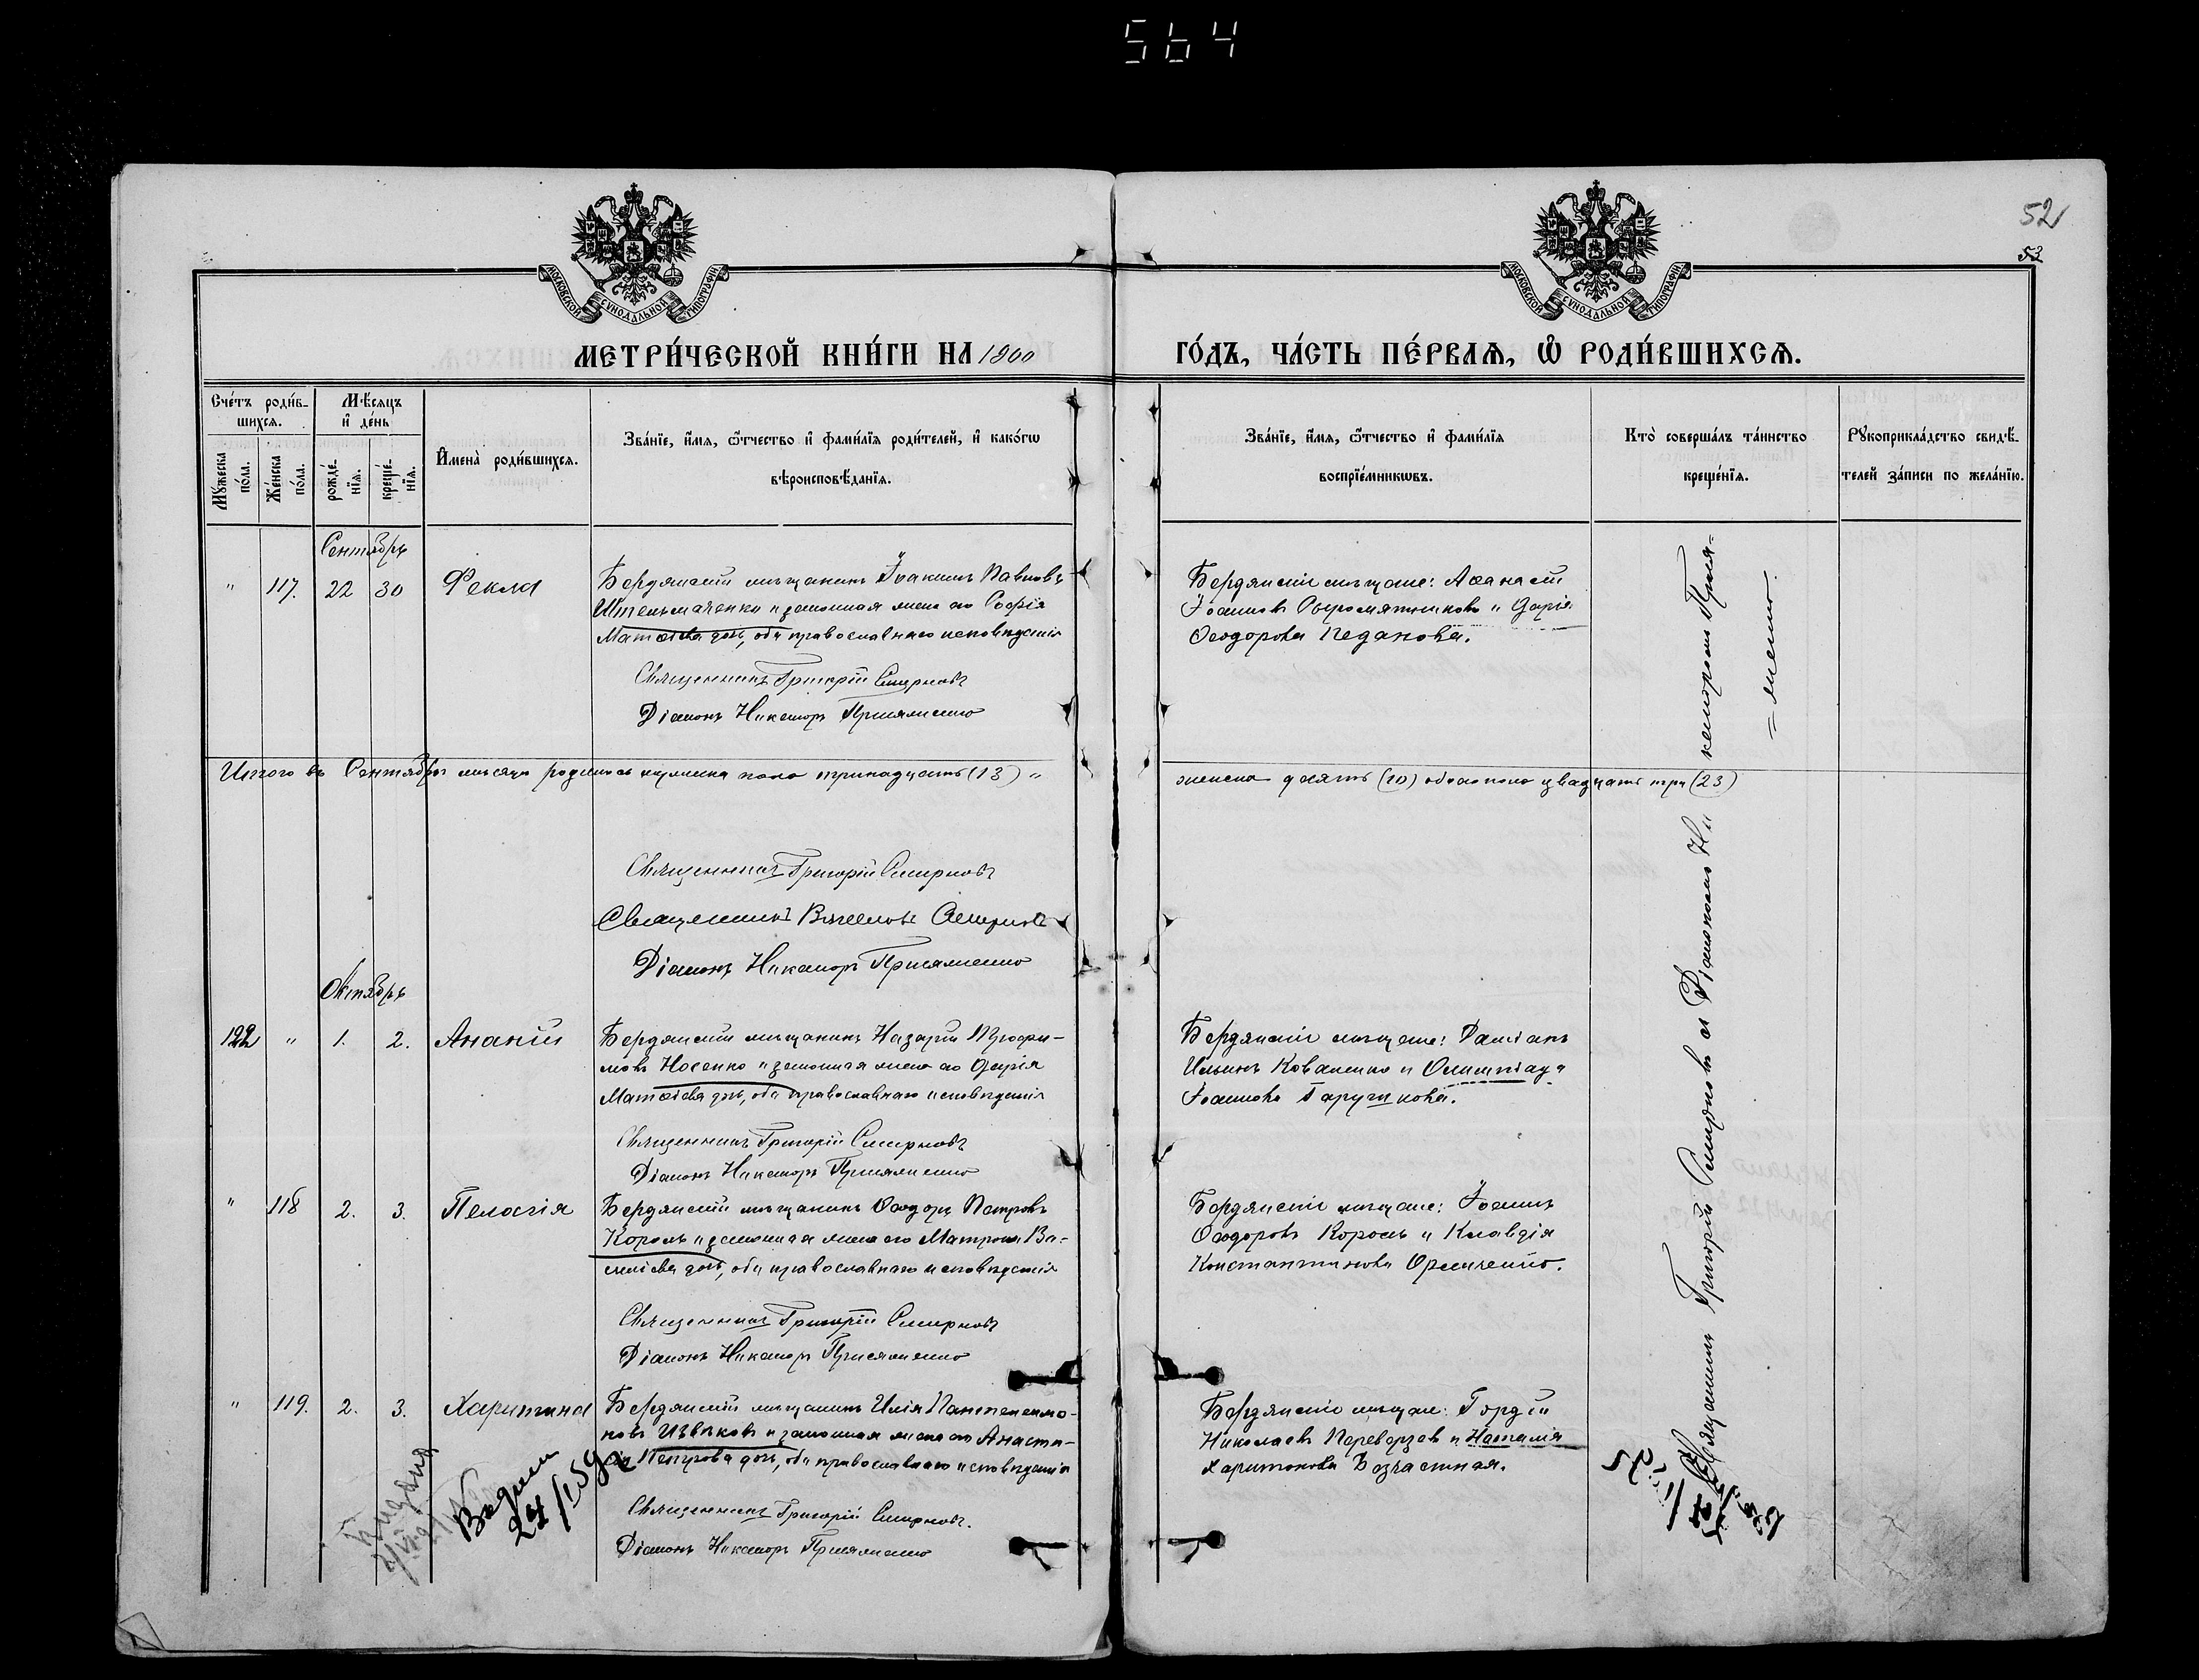 564
52
53
МОСКОВСКОЙ СѴНОДАЛЬНОЙ ТИПОГРАФІИ
МОСКОВСКОЙ СѴНОДАЛЬНОЙ ТИПОГРАФІИ
МЕТРИ́ЧЕСКОЙ КНИ́ГИ НА 1900
ГО́ДЪ, ЧА́СТЬ ПЕ́РВАЯ, Ѡ҆ РОДИ́ВШИХСЯ.
Сче́тъ роди́в-
шихся.
Мѣ́сяцъ
и҆ де́нь
Мꙋ́жеска по́ла.
Же́нска по́ла.
рожде́-
нїя.
креще́-
нїя.
И҆мена̀ роди́вшихся.
Зва́нїе, и҆́мя, ѻ҆́тчество и҆ фами́лїя роди́телей, и҆ како́гѡ
вѣроисповѣ́данїя.
Зва́нїе, и҆́мя, ѻ҆́тчество и҆ фами́лїя
воспрїе́мникѡвъ.
Кто̀ соверша́лъ та́инство
креще́нїя.
Рꙋкоприкла́дство свидѣ́-
телей за́писи по жела́нїю.
Сентябрь
" 117. 22 30 Фекла
Бердянскій мѣщанинъ Іоакимъ Павловъ
Штельмаченко и законная жена его Софія
Матѳіева дочь, оба православнаго исповѣданія
Священникъ Григорій Смирновъ
Діаконъ Никаноръ Присяженко
Бердянскіе мѣщане: Аѳанасій
Іоанновъ Сыромятниковъ и Дарія
Ѳеодорова Педанова.
Итого въ Сентябрѣ мѣсяцѣ родилось мужеска пола тринадцать (13) "
женска десять (10) обоего пола двадцать три (23)
Священникъ Григорій Смирновъ
Священникъ Смирновъ
Діаконъ Никаноръ Присяженко
Октябрь
122 " 1. 2. Ананій
Бердянскій мѣщанинъ Назарій Трофи-
мовъ Носенко и законная жена его Дарія
Матѳіева дочь, оба православнаго исповѣданія
Священникъ Григорій Смирновъ
Діаконъ Никаноръ Присяженко
Бердянскіе мѣщане: Даміанъ
Ильинъ Коваленко и Олимпіада
Іоаннова
" 118 2. 3. Пелагія
Бердянскій мѣщанинъ Ѳеодоръ Петровъ
Король и законная жена его Матрона Ва-
силіева дочь, оба православнаго исповѣданія
Священникъ Григорій Смирновъ
Діаконъ Никаноръ Присяженко
Бердянскіе мѣщане: Іоаннъ
Ѳеодоровъ Король и Клавдія
Константинова
" 119. 2. 3. Харитина
Бердянскій мѣщанинъ Илія Пантелеимо-
новъ Извѣковъ и законная жена его Анаста-
сія Петрова дочь, оба православнаго исповѣданія
Священникъ Григорій Смирновъ.
Діаконъ Никаноръ Присяженко
Бердянскіе мѣщане: Гордій
Николаевъ Переверзевъ и Наталія
Харитонова Безчастная.
Священникъ Григорій Смирновъ съ Діакономъ Ни
каноромъ Прися-
=женко.